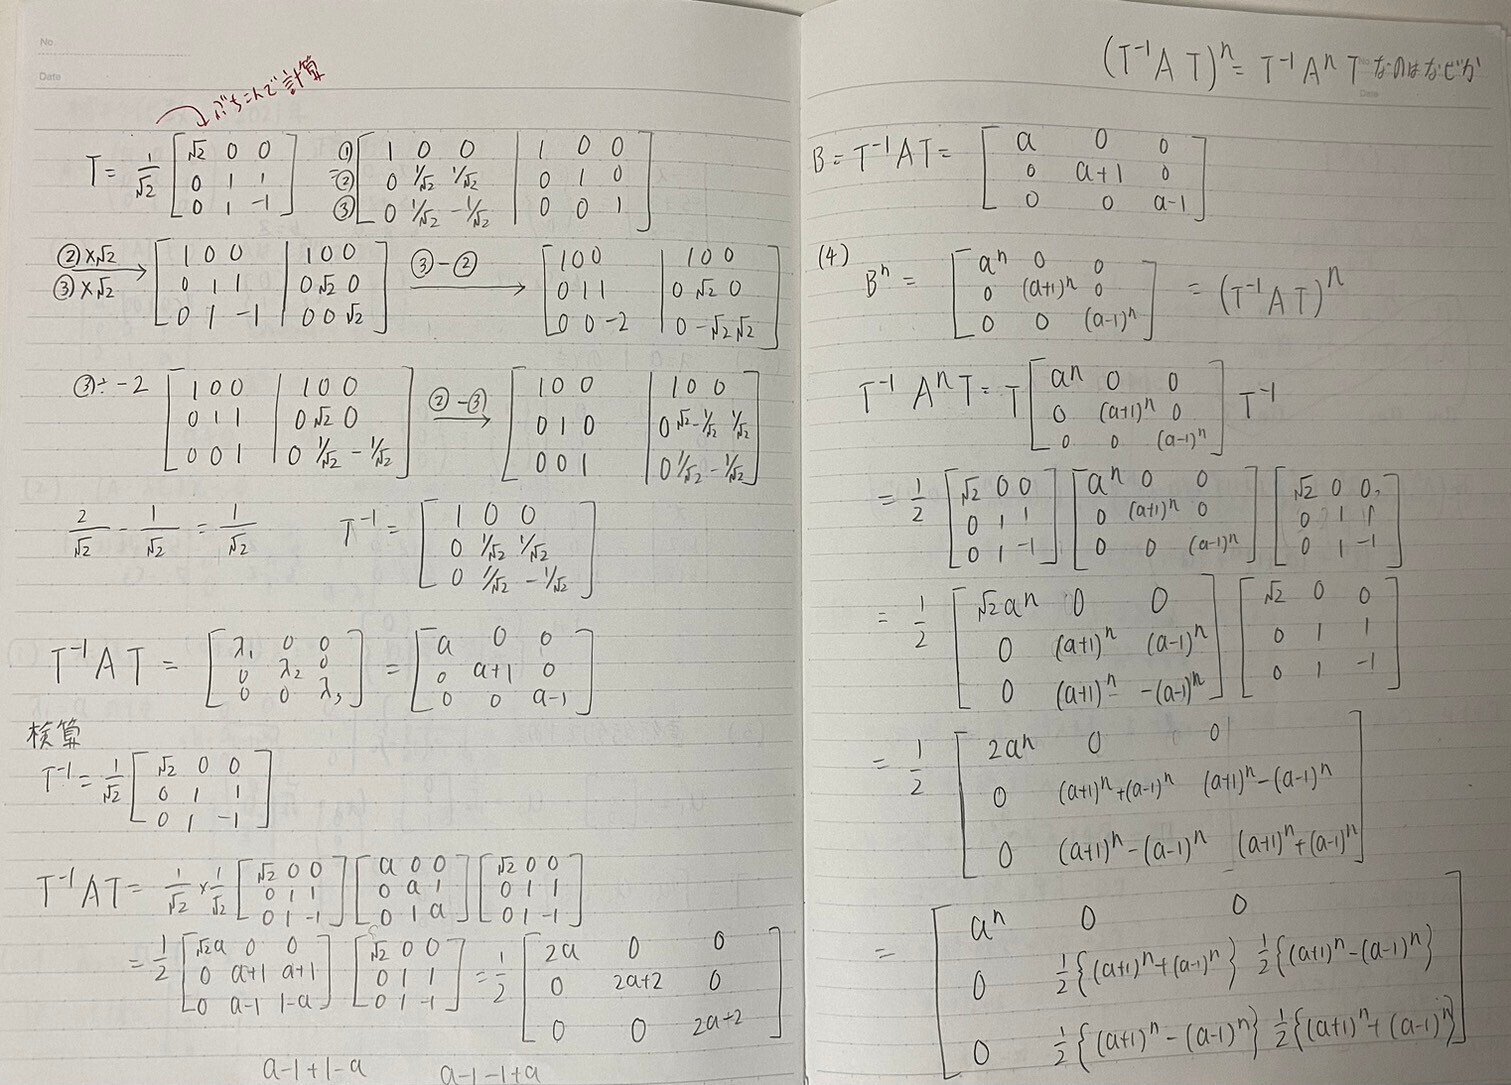 No
Date
ぶちこんで計算
T = 1/√2 [√2 0 0; 0 1 1; 0 1 -1] ① ② ③ [1 0 0 | 1 0 0; 0 1/√2 1/√2 | 0 1 0; 0 1/√2 -1/√2 | 0 0 1]
②×√2 ③×√2 → [1 0 0 | 1 0 0; 0 1 1 | 0 √2 0; 0 1 -1 | 0 0 √2] ③-② → [1 0 0 | 1 0 0; 0 1 1 | 0 √2 0; 0 0 -2 | 0 -√2 √2]
③÷-2 [1 0 0 | 1 0 0; 0 1 1 | 0 √2 0; 0 0 1 | 0 1/√2 -1/√2] ②-③ → [1 0 0 | 1 0 0; 0 1 0 | 0 √2-1/√2 1/√2; 0 0 1 | 0 1/√2 -1/√2]
2/√2 - 1/√2 = 1/√2 T⁻¹ = [1 0 0; 0 1/√2 1/√2; 0 1/√2 -1/√2]
T⁻¹AT = [λ₁ 0 0; 0 λ₂ 0; 0 0 λ₃] = [a 0 0; 0 a+1 0; 0 0 a-1]
検算
T⁻¹ = 1/√2 [√2 0 0; 0 1 1; 0 1 -1]
T⁻¹AT = 1/√2 × 1/√2 [√2 0 0; 0 1 1; 0 1 -1] [a 0 0; 0 a 1; 0 1 a] [√2 0 0; 0 1 1; 0 1 -1]
= 1/2 [√2a 0 0; 0 a+1 a+1; 0 a-1 1-a] [√2 0 0; 0 1 1; 0 1 -1] = 1/2 [2a 0 0; 0 2a+2 0; 0 0 2a-2]
a-1+1-a a-1-1+a
(T⁻¹AT)ⁿ = T⁻¹AⁿT なのはなぜか
Date
B = T⁻¹AT = [a 0 0; 0 a+1 0; 0 0 a-1]
(4) Bⁿ = [aⁿ 0 0; 0 (a+1)ⁿ 0; 0 0 (a-1)ⁿ] = (T⁻¹AT)ⁿ
T⁻¹AⁿT = T [aⁿ 0 0; 0 (a+1)ⁿ 0; 0 0 (a-1)ⁿ] T⁻¹
= 1/2 [√2 0 0; 0 1 1; 0 1 -1] [aⁿ 0 0; 0 (a+1)ⁿ 0; 0 0 (a-1)ⁿ] [√2 0 0; 0 1 1; 0 1 -1]
= 1/2 [√2aⁿ 0 0; 0 (a+1)ⁿ (a-1)ⁿ; 0 (a+1)ⁿ -(a-1)ⁿ] [√2 0 0; 0 1 1; 0 1 -1]
= 1/2 [2aⁿ 0 0; 0 (a+1)ⁿ+(a-1)ⁿ (a+1)ⁿ-(a-1)ⁿ; 0 (a+1)ⁿ-(a-1)ⁿ (a+1)ⁿ+(a-1)ⁿ]
= [aⁿ 0 0; 0 1/2{(a+1)ⁿ+(a-1)ⁿ} 1/2{(a+1)ⁿ-(a-1)ⁿ}; 0 1/2{(a+1)ⁿ-(a-1)ⁿ} 1/2{(a+1)ⁿ+(a-1)ⁿ}]